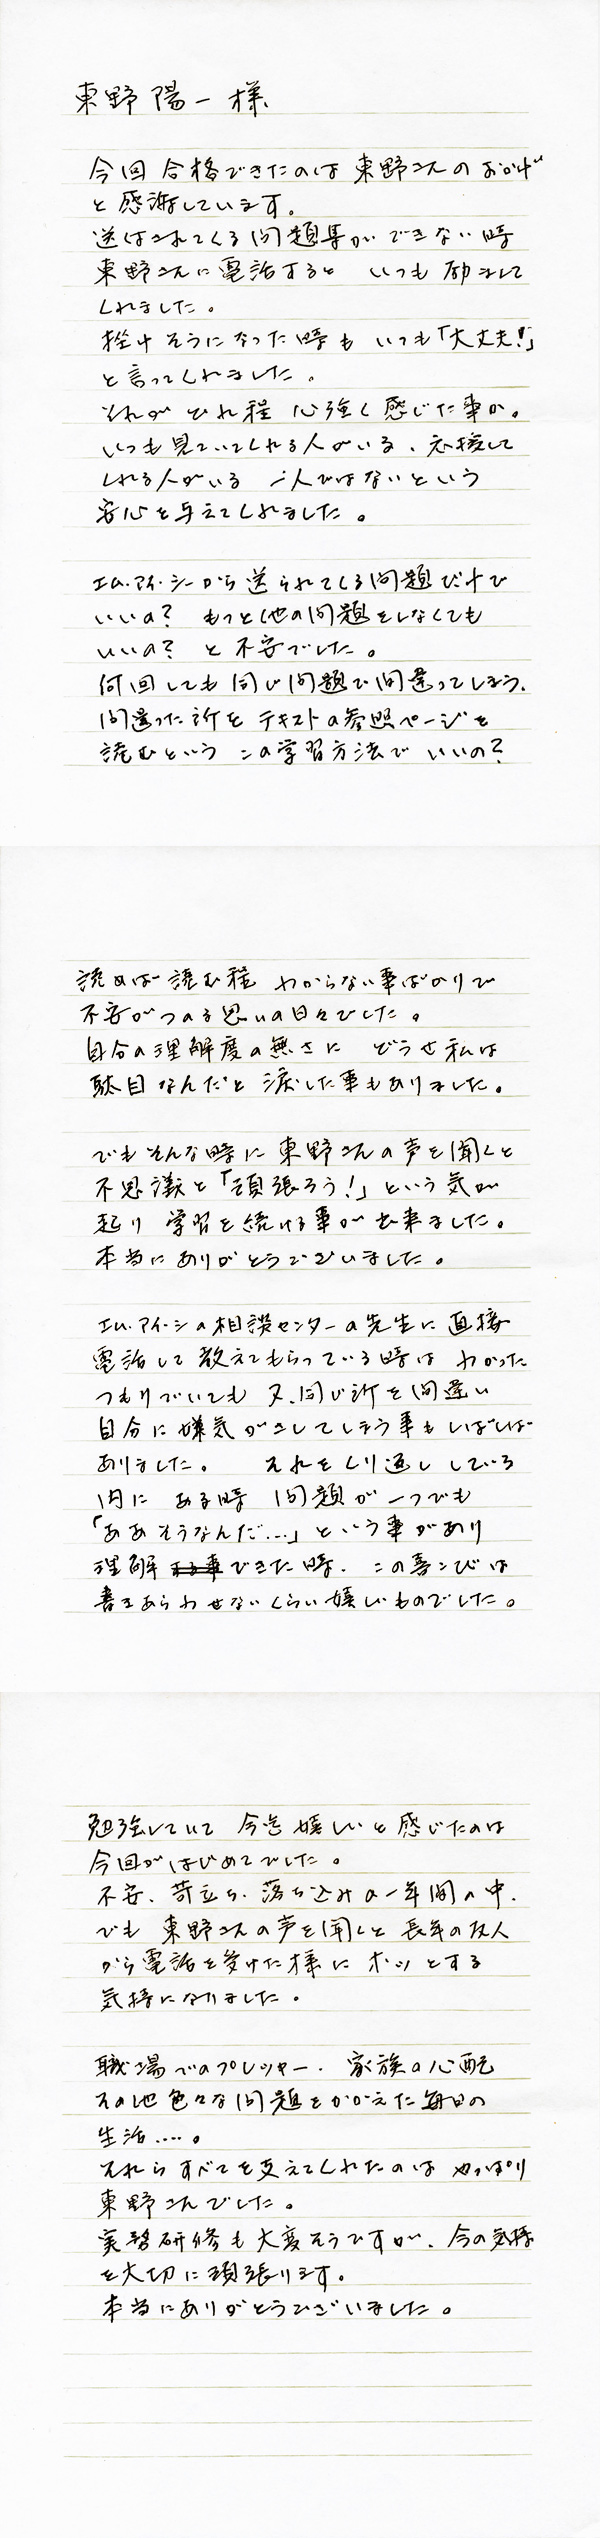 東野 陽一 様
今回 合格できたのは 東野さんの おかげ
と 感謝しています。
送られてくる 問題集が できない時
東野さんに 電話すると いつも 励まして
くれました。
挫けそうになった時も いつも「大丈夫!」
と言ってくれました。
それが どれ程 心強く 感じた事か。
いつも見ていてくれる人がいる、応援して
くれる人がいる 一人ではないという
安心を与えてくれました。
エム・アイ・シーから 送られてくる問題だけで
いいの? もっと他の問題をしなくても
いいの? と 不安でした。
何回しても 同じ問題で 間違ってしまう、
間違った所を テキストの参照ページを
読むという この学習方法で いいの?
読めば 読む程 わからない事ばかりで
不安がつのる思いの日々でした。
自分の理解度の無さに どうせ私は
駄目なんだと 涙した事もありました。
でも そんな時に 東野さんの声を聞くと
不思議と「頑張ろう!」という気が
起り 学習を続ける事が出来ました。
本当に ありがとうございました。
エム・アイ・シの相談センターの先生に 直接
電話して 教えてもらっている時は わかった
つもりでいても 又、同じ所を間違い
自分に嫌気がさしてしまう事もしばしば
ありました。 それをくり返し している
内に ある時 問題が一つでも
「ああそうなんだ…」という事があり
理解 できた時、この喜こびは
書きあらわせないくらい嬉しいものでした。
勉強していて 今迄 嬉しいと感じたのは
今回がはじめてでした。
不安、苛立ち、落ち込みの一年間の中、
でも 東野さんの声を聞くと 長年の友人
から電話を受けた様に ホッとする
気持になりました。
職場でのプレッシャー、家族の心配
その他色々な問題をかかえた毎日の
生活‥‥。
それらすべてを支えてくれたのは やっぱり
東野さんでした。
実務研修も大変そうですが、今の気持
を大切に頑張ります。
本当にありがとうございました。